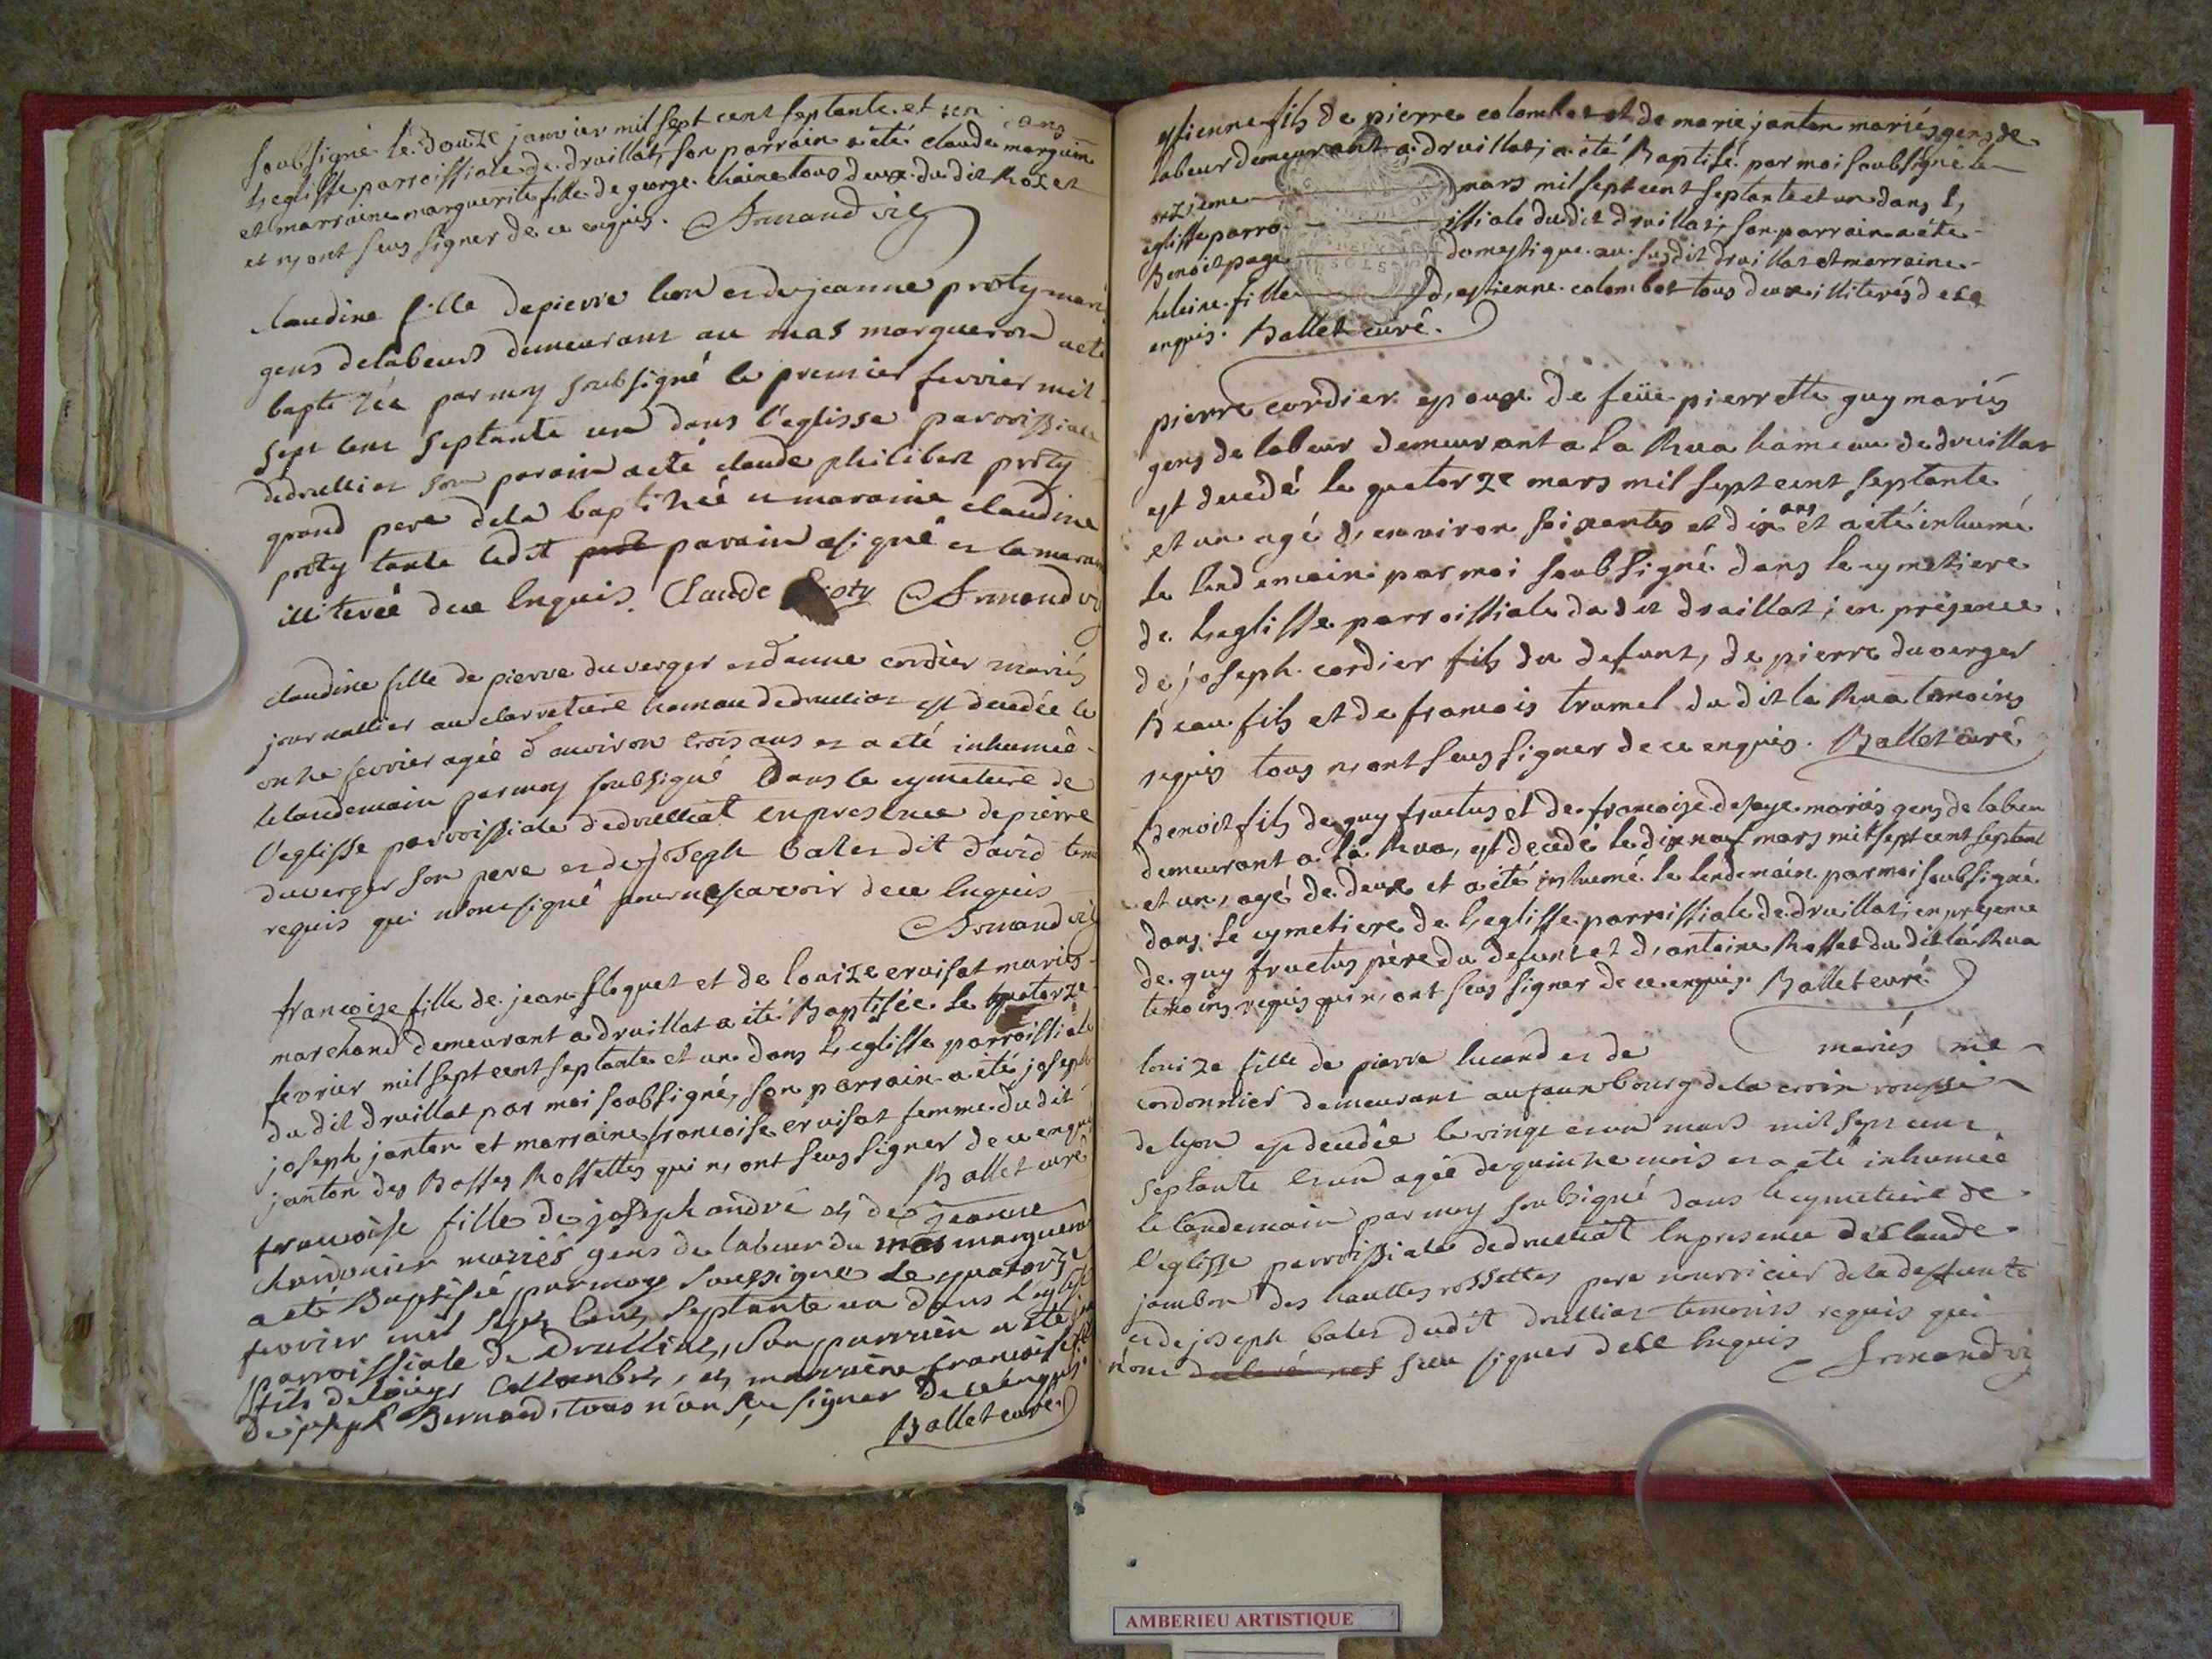 soubsigné le douze janvier mil sept cent septante et un dans
l,eglisse parroissiale de druillat, son parrain a été claude marguin
et marraine marguerite fille de george chaine tous deux du dit Rozet
et n,ont seus signer de ce enquis. Armand vic
claudine fille de pierre lion et de jeanne proty mariés
gens de labeurs demeurant au mas margueron a eté
baptizée par moy soubsigné le premier fevrier mil
sept cent septante un dans l'eglisse parroissiale
dedruillat son parain a eté claude philibert proty
grand pere dela baptizéé et maraine claudine
proty tante ledit parain a signé et la maraine
illiterée de ce enquis. Claude proty Armand vic
claudine fille de pierre duverger et danne cordier mariés
journallier au clarretiere hameau dedruillat est decedée le
onze fevrier agée d'anviron trois ans et a eté inhumée
le landemain par moy soubsigné dans le cymetiere de
l'eglisse parroissiale dedruilliat en presence de pierre
duverger son pere et de joseph balet dit david temoins
requis qui n'ont signé pour ne scavoir de ce enquis
Armand vic
francoise fille de jean floquet et de louize cruisat mariés
marchand demeurant a druillat a été Baptisée le quatorze
fevrier mil sept cent septante et un dans l,eglisse parroissiale
du dit druillat par moi soubsigné, son parrain a été joseph
joseph janton et marraine francoise cruisat femme du dit
janton des Basses Rossettes qui n,ont seus signer de ce enquis
Ballet curé
francoise fille de joseph andré et de jeanne
chardonier mariés gens de labeur du mas margueron
a eté Baptisée par moy soussigné le quatorze
fevrier mil sept cent septante un dans l'eglise
parroissiale de Druillat, son parrain a eté
fils de louys Collombet, et marraine francoise fille
de joseph Bernard, tous n'ont sçu signer de ce enquis
Ballet curé
estienne fils de pierre colombet et de marie janton mariés gens de
labeur demeurant a druillat, a été Baptisé par moi soubsigné le
onzieme mars mil sept cent septante et un dans l,
eglisse parroissiale du dit druillat, son parrain a été
Benoit page domestique au susdit druillat et marraine
heleine fille d,estienne colombet tous deux illiterés de ce
enquis. Ballet curé.
pierre cordier epoux de feüe pierrette guy mariés
gens de labeur demeurant a la Rua hameau de druillat
est decedé le quatorze mars mil sept cent septante
et un agé d,environ soixante et dix ans et a été inhumé
le lendemain par moi soubsigné dans le cymetiere
de l,eglisse parroissiale du dit druillat; en présence
de joseph cordier fils du defunt, de pierre duverger
Beau fils et de francois tramel du dit la Rua temoins
requis tous n,ont seus signer de ce enquis. Ballet curé
Benoit fils de guy fructus et de francoize defaye mariés gens de labeur
demeurant a la Rua, est decedé le dix neuf mars mil sept cent septante
et un, agé de deux et a été inhumé le lendemain par moi soubsigné
dans le cymetiere de l,eglisse parroissiale de druillat, en présence
de guy fructus père du defunt et d,antoine Rosset du dit la Rua
temoins requis qui n,ont seus signer de ce enquis. Ballet curé
louize fille de pierre lucand et de mariés me
cordonnier demeurant au faux bourg de la croix rousse
de lyon est decedée le vingt et un mars mil sept cent
septante et un agée de quinze mois et a eté inhumée
le landemain par moy soubsigné dans le cymetiere de
l'eglisse parroissiale dedruilliat en presence de claude
jambon des hauttes rossettes pere nourricier de la defunte
et de joseph balet dudit druillat temoins requis qui
n'ont sceu signer de ce enquis Armand vic
AMBERIEU ARTISTIQUE